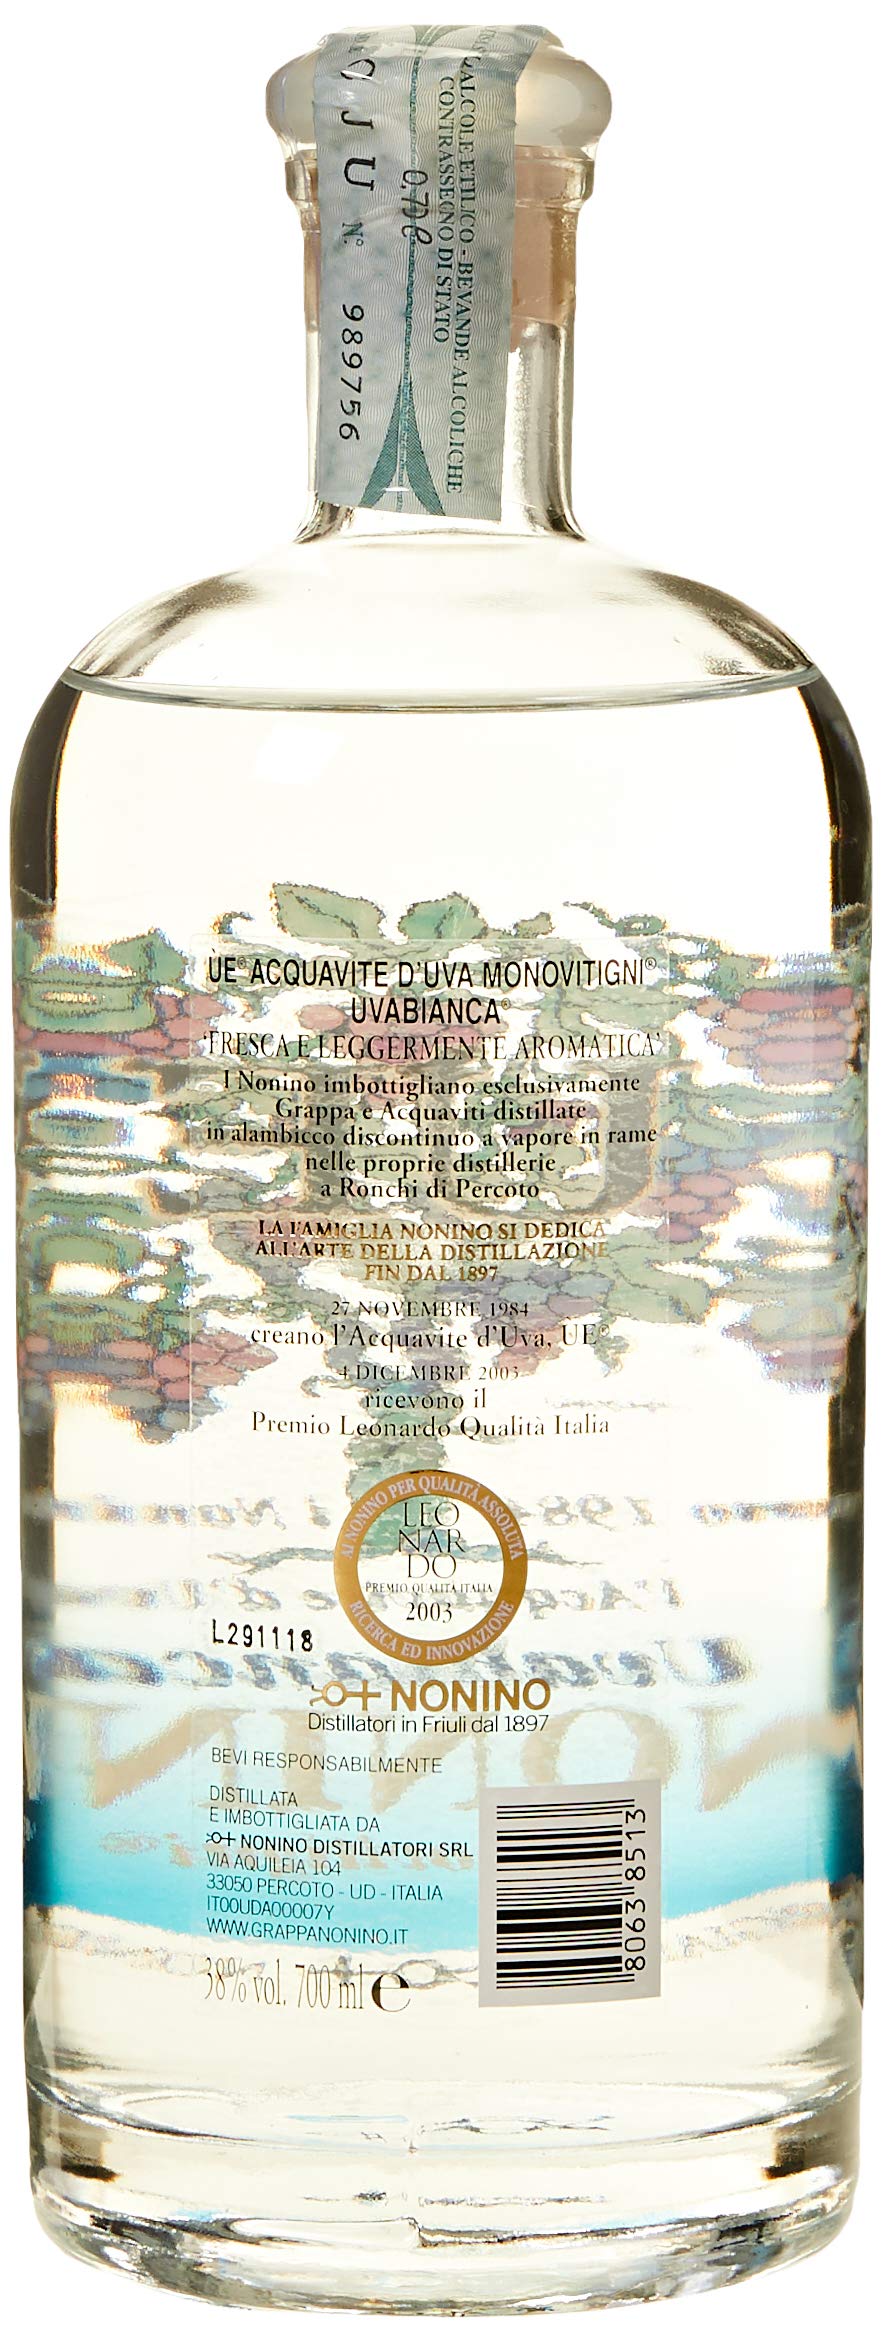 AJU N° 989756
0,70ℓ
ALCOLE ETILICO - BEVANDE ALCOLICHE
CONTRASSEGNO DI STATO
ÙE® ACQUAVITE D'UVA MONOVITIGNI®
UVABIANCA®
'FRESCA E LEGGERMENTE AROMATICA'
I Nonino imbottigliano esclusivamente
Grappa e Acquaviti distillate
in alambicco discontinuo a vapore in rame
nelle proprie distillerie
a Ronchi di Percoto
LA FAMIGLIA NONINO SI DEDICA
ALL'ARTE DELLA DISTILLAZIONE
FIN DAL 1897
27 NOVEMBRE 1984
creano l'Acquavite d'Uva, ÙE®
4 DICEMBRE 2003
ricevono il
Premio Leonardo Qualità Italia
AI NONINO PER QUALITÀ ASSOLUTA
LEO
NAR
DO
PREMIO QUALITÀ ITALIA
2003
RICERCA ED INNOVAZIONE
L291118
NONINO
Distillatori in Friuli dal 1897
BEVI RESPONSABILMENTE
DISTILLATA
E IMBOTTIGLIATA DA
NONINO DISTILLATORI SRL
VIA AQUILEIA 104
33050 PERCOTO - UD - ITALIA
IT00UDA00007Y
WWW.GRAPPANONINO.IT
38% vol. 700 ml e
8063 8513